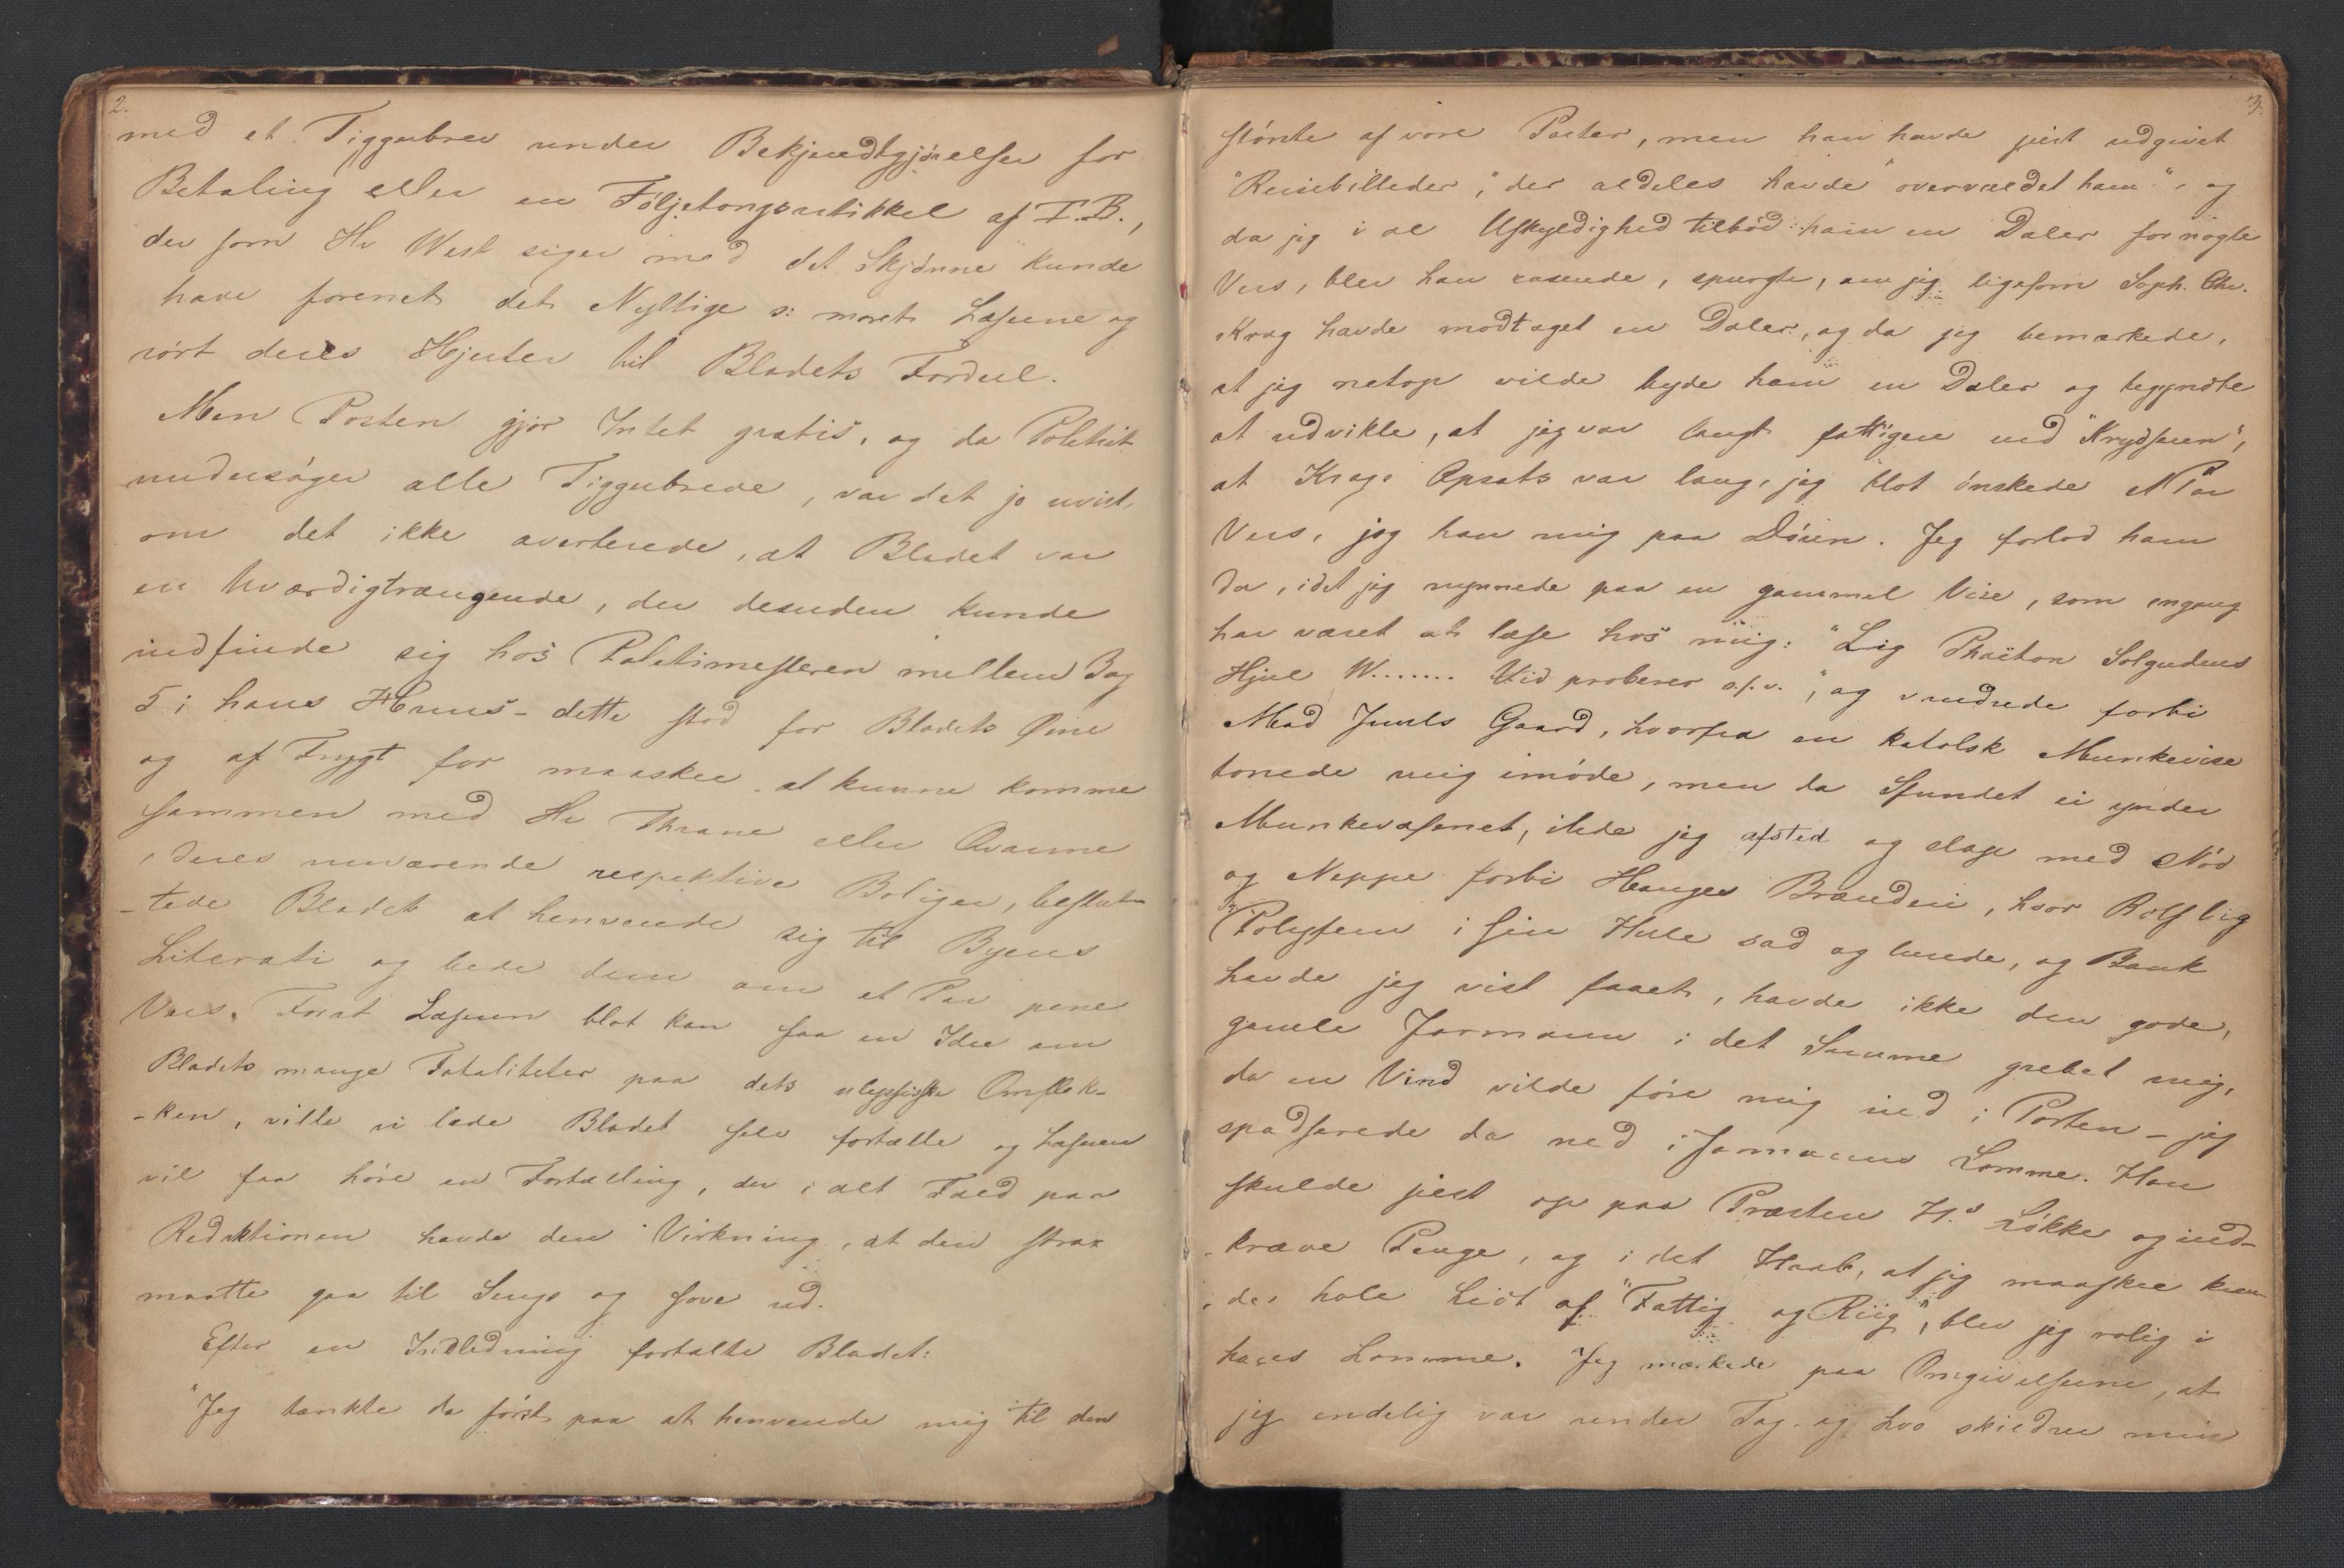 2.
med et Tiggerbrev under Bekjendtgjørelser for
Betaling eller en Føljetongartikkel af T.B.,
der som Hr West siger med det Skjønne kunde
have forenet det Nyttige ɔ: moret Læserne og
rört deres Hjerter til Bladets Fordeel.
Men Posten gjør Intet gratis, og da Politiet
undersøger alle Tiggerbreve, var det jo uvist,
om det ikke averterede, at Bladet var
en Uværdigtrængende, der desuden kunde
indfinde sig hos Politimesteren mellem 3 og
5 i hans Huus - dette stod for Bladets Øine
og af Frygt for maaskee at kunne komme
sammen med Hr Thrane eller Qvarme
i deres nuværende respektive Boliger, beslut-
-tede Bladet at henvende sig til Byens
Literati og bede dem om et Par pene
Vers. Forat Læseren blot kan faa en Idee om
Bladets mange Fataliteter paa dets ulyssiske Omflak-
-ken, ville vi lade Bladet selv fortælle og Læseren
vil faa høre en Fortælling, der i alt Fald paa
Redaktionen havde den Virkning, at den strax
maatte gaa til Sengs og sove ud.
Efter en Indledning fortalte Bladet:
"Jeg tænkte da først paa at henvende mig til den
3.
største af vore Poeter, men han havde just udgivet
"Reisebilleder," der aldeles havde "overvældet ham", og
da jeg i al Uskyldighed tilbød ham en Daler for nogle
Vers, blev han rasende, spurgte, om jeg ligesom Soph. Chr.
Krag havde modtaget en Daler, og da jeg bemærkede,
at jeg netop vilde byde ham en Daler og begyndte
at udvikle, at jeg var langt fattigere end "Krydseren",
at Krags Opsats var lang, jeg blot ønskede et Par
Vers, jog han mig paa Døren. Jeg forlod ham
da, idet jeg nynnede paa en gammel Vise, som engang
har været at læse hos mig: "Lig Phaëton Solgudens
Hjul W....... Vid proberer o.s.v.", og vandrede forbi
Mad Juuls Gaard, hvorfra en katolsk Munkevise
tonede mig imøde, men da Sfundet ei ynder
Munkevæsenet, ilede jeg afsted og slap med Nød
og Neppe forbi Hauges Brænderi, hvor Rolf lig
Polyfem i sin Hule sad og lurede, og Bank
havde jeg vist faaet, havde ikke den gode,
gamle Jarmann i det Samme grebet mig,
da en Vind vilde føre mig ind i Porten - jeg
spadserede da ned i Jarmanns Lomme. Han
skulde just op paa Præsten H.s Løkke og ind-
-kræve Penge, og i det Haab, at jeg maaskee kun-
-de hale Lidt af "Fattig og Riig", blev jeg rolig i
hans Lomme. Jeg mærkede paa Omgivelserne, at
jeg endelig var under Tag og hvo skildrer min